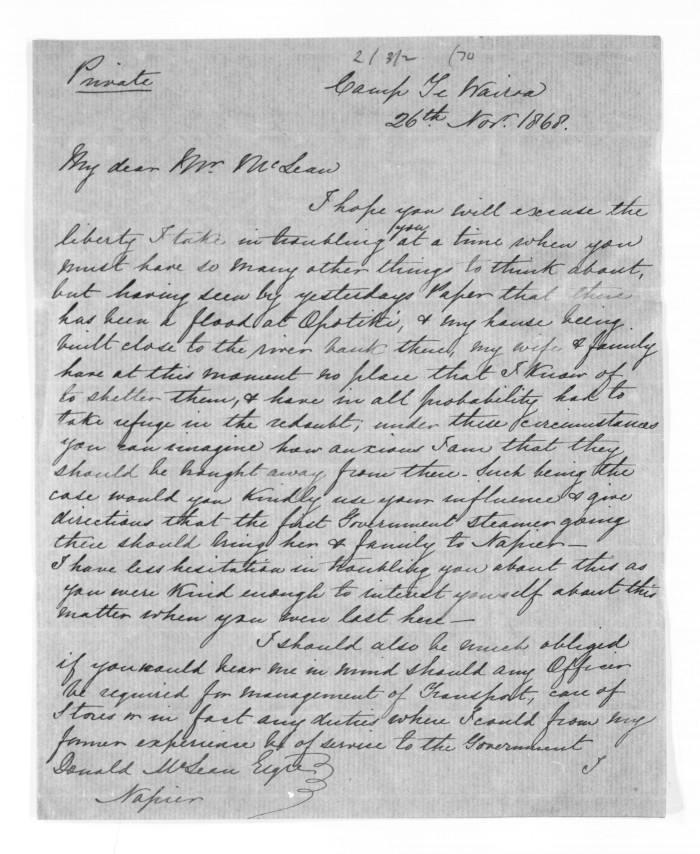 2/3/2 /70
Private
Camp Te Wairoa
26th Nov. 1868.
My dear Mr. McLean
I hope you will excuse the
liberty I take in troubling you at a time when you
must have so many other things to think about,
but having seen by yesterdays Paper that there
has been a flood at Opotiki, & my house being
built close to the river bank there, my wife & family
have at this moment no place that I know of
to shelter them, & have in all probability had to
take refuge in the redoubt; under these circumstances
you can imagine how anxious I am that they
should be brought away from there. Such being the
case would you kindly use your influence & give
directions that the first Government steamer going
there should bring her & family to Napier—
I have less hesitation in troubling you about this as
you were kind enough to interest yourself about this
matter when you were last here—
I should also be much obliged
if you would bear me in mind should any Officer
be required for management of Transport, care of
Stores or in fact any duties where I could from my
former experience be of service to the Government
Donald McLean Esqre
I
Napier